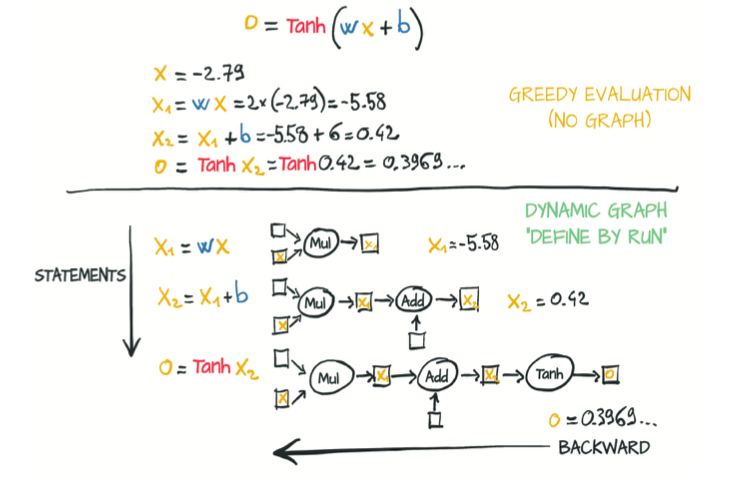 O = Tanh(wx+b)
X = -2.79
X₁ = wX = 2×(-2.79) = -5.58
X₂ = X₁ + b = -5.58 + 6 = 0.42
O = Tanh X₂ = Tanh 0.42 = 0.3969...
GREEDY EVALUATION
(NO GRAPH)
DYNAMIC GRAPH
"DEFINE BY RUN"
STATEMENTS
X₁ = wX
X Mul X₁
X₁ = -5.58
X₂ = X₁ + b
X Mul X₁ Add X₂
X₂ = 0.42
O = Tanh X₂
X Mul X₁ Add X₂ Tanh O
O = 0.3969...
BACKWARD